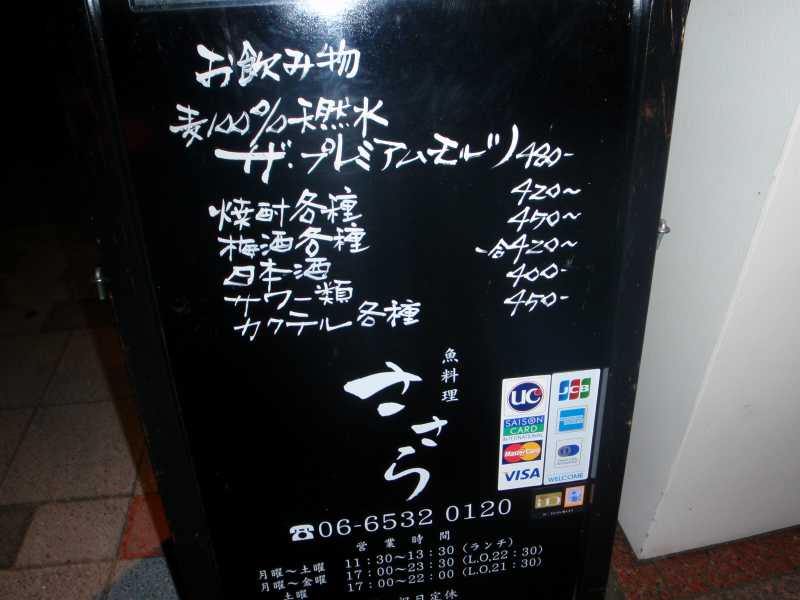 お飲み物
麦100%天然水
ザ・プレミアムモルツ 480-
焼酎各種 420~
梅酒各種 450~
日本酒 一合420~
サワー類 400-
カクテル各種 450-
魚料理
ささら
UC
SAISON CARD INTERNATIONAL
MasterCard
VISA
JCB
WELCOME
iD
☎06-6532 0120
営業時間
月曜〜土曜 11:30〜13:30(ランチ)
月曜〜金曜 17:00〜23:30(L.O.22:30)
土曜 17:00〜22:00(L.O.21:30)
祝日定休